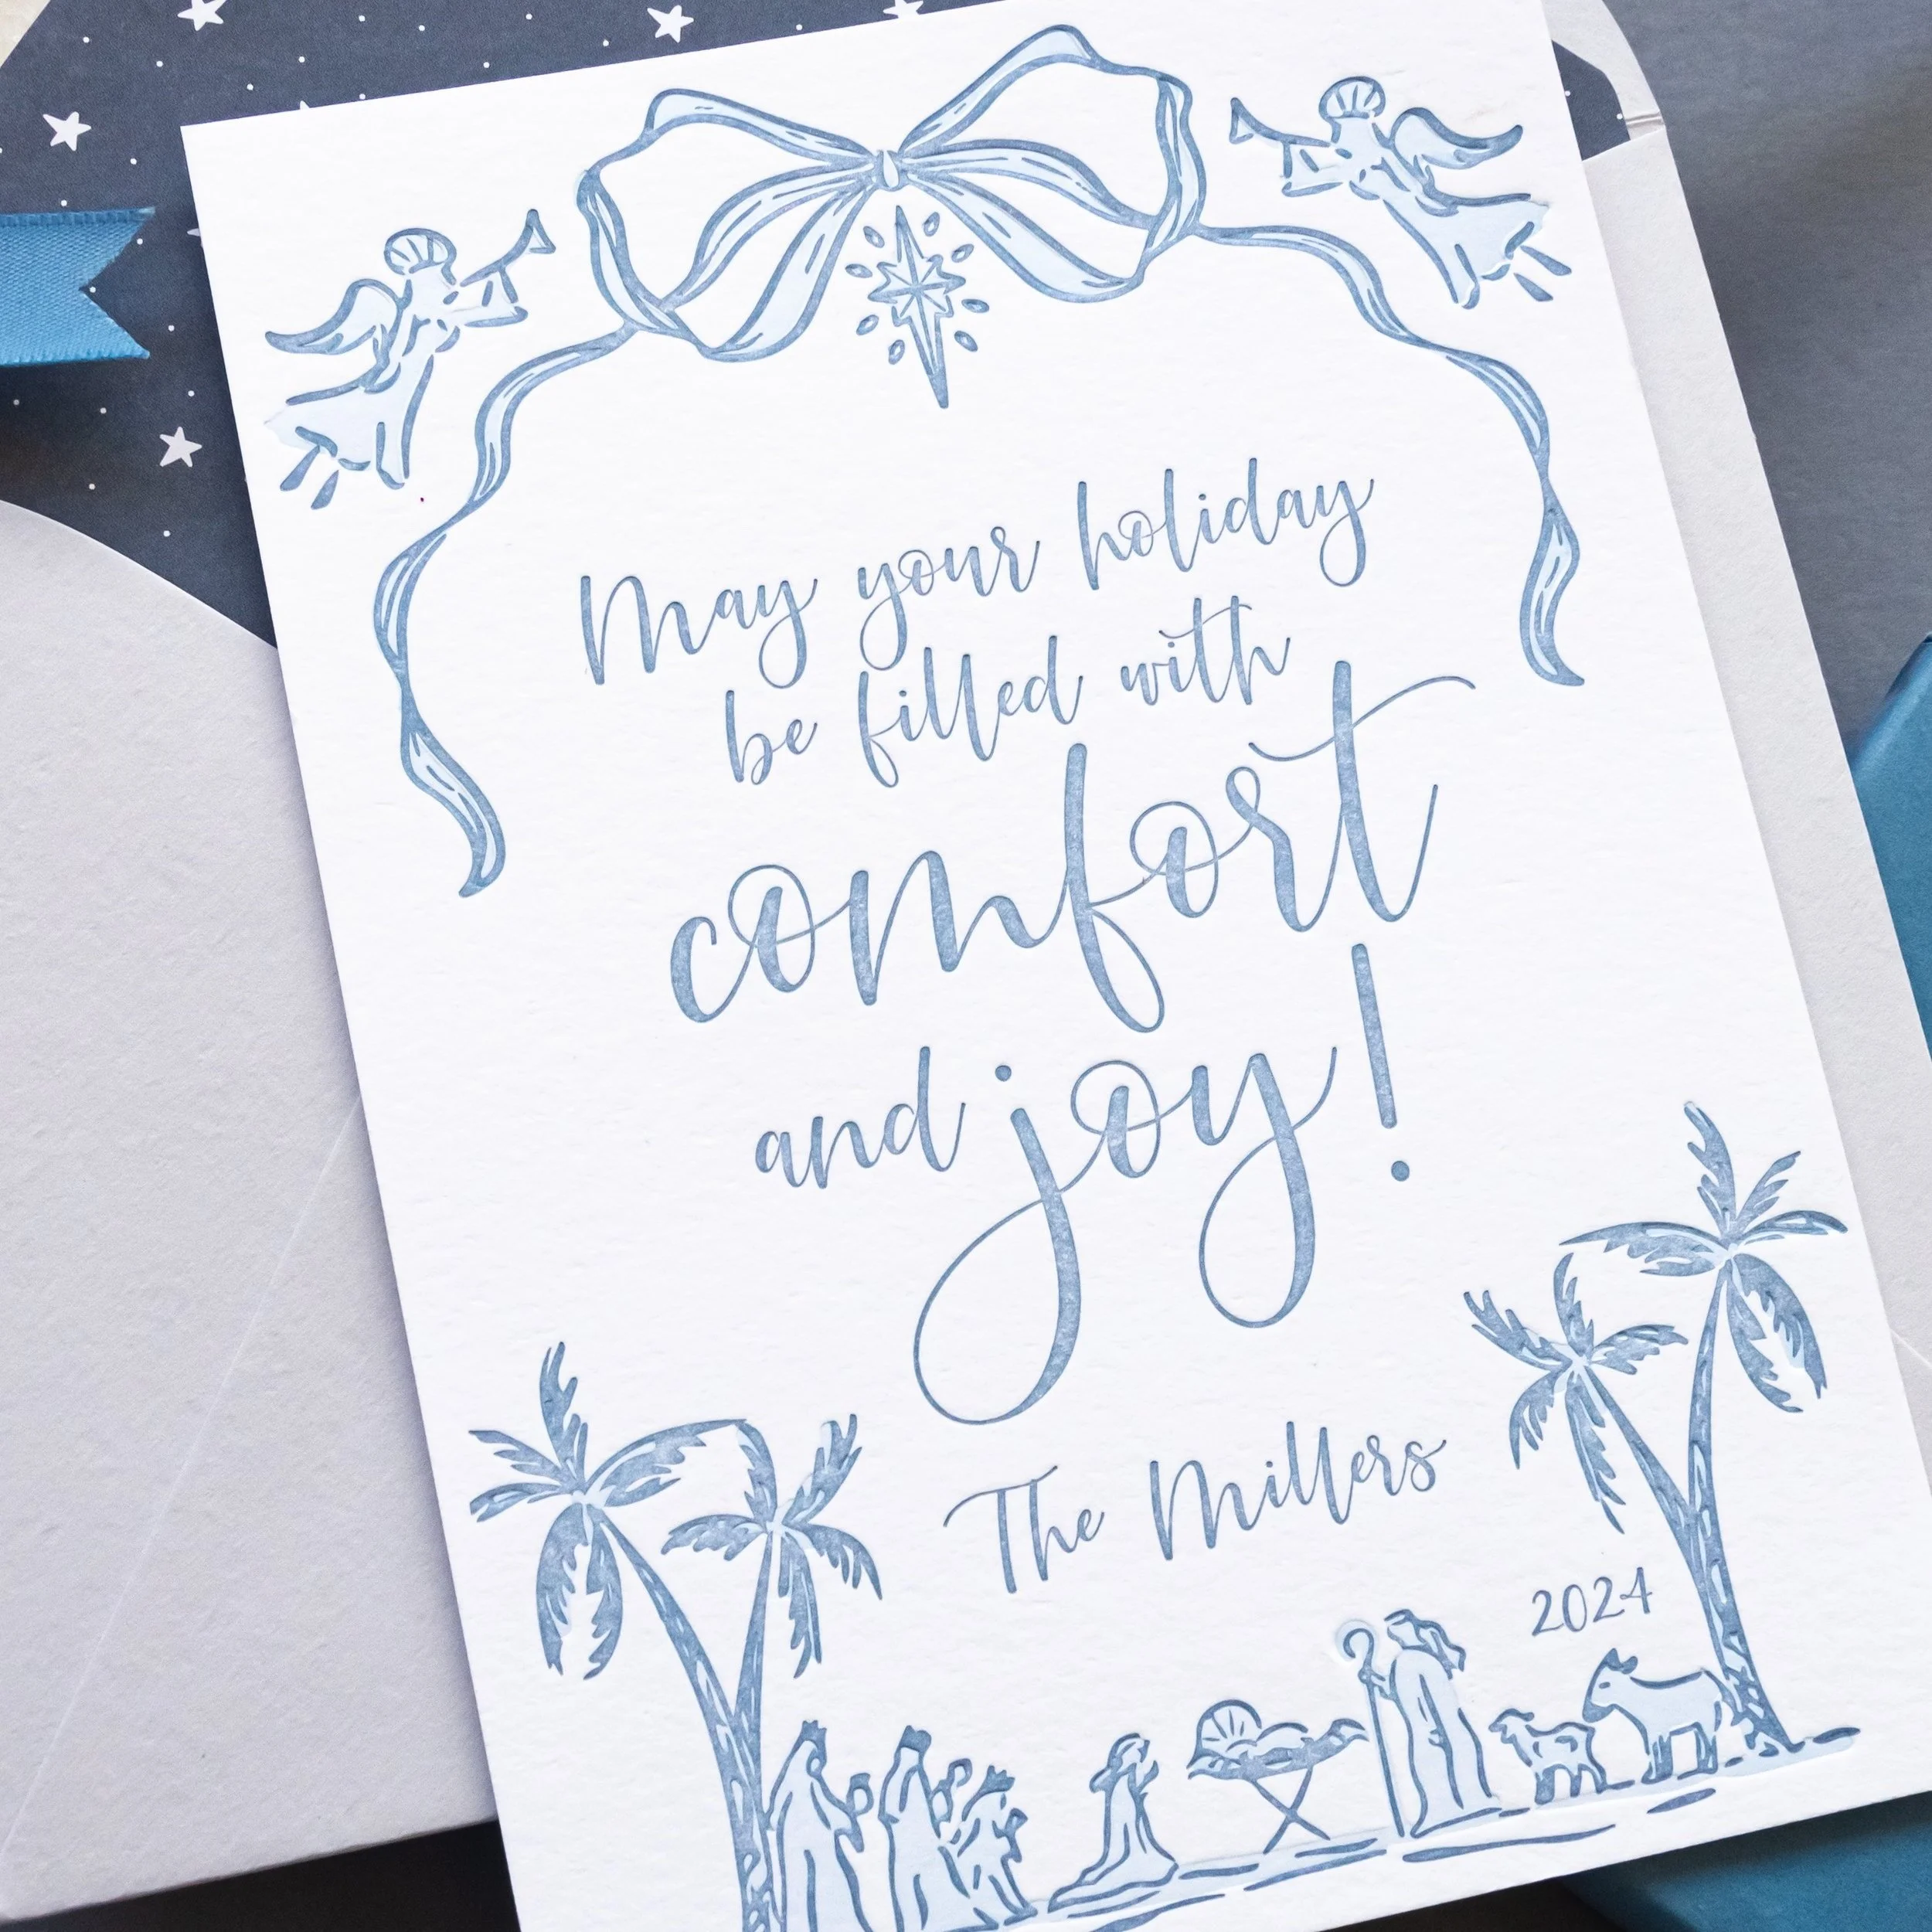 May your holiday
be filled with
comfort
and joy!
The Millers
2024